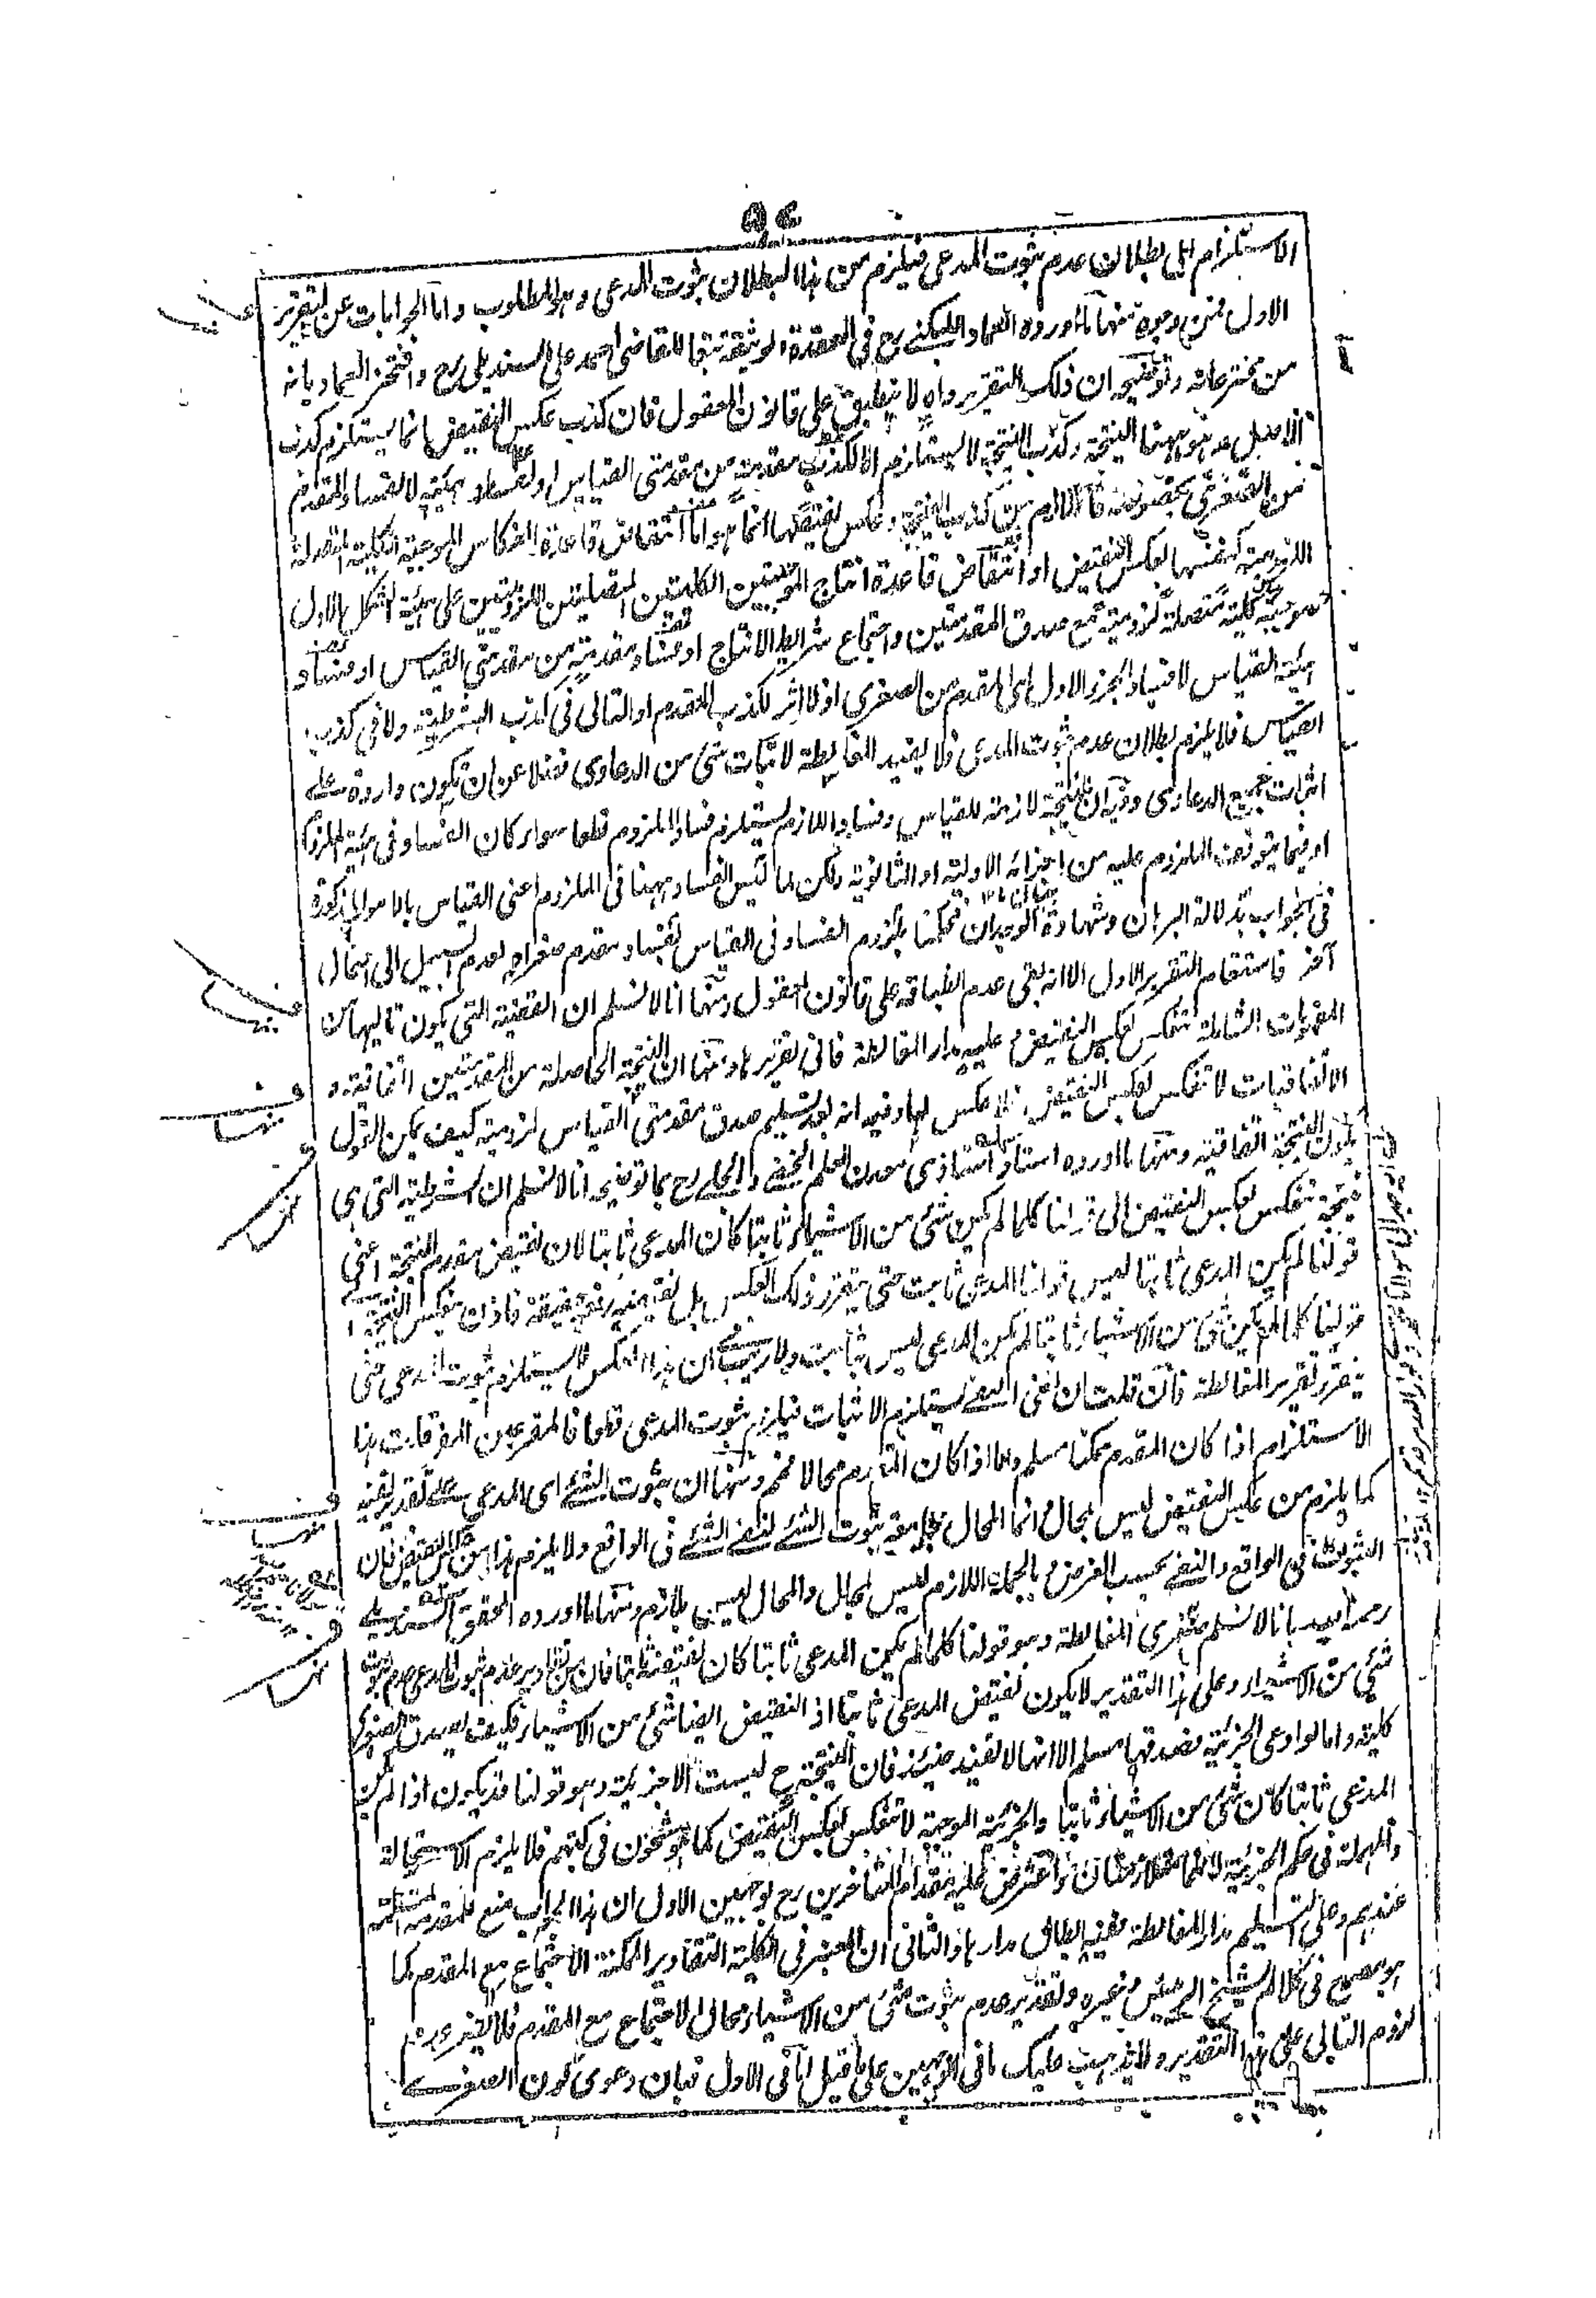 ٥٤
الاستلزام اى بطلان عدم ثبوت المدعى فيلزم من هذا البطلان ثبوت المدعى وهو المطلوب واما الجوابات عن التقرير
الاول فمن وجوه منها ما اورده العماد اللبكنى رح فى العقدة الوثيقة تبعا للقاضى احمد على السنديلى رح وافتخر العماد بانه
من مخترعاته وتوضيحه ان ذلك التقرير واه لا ينطبق على قانون المعقول فان كذب عكس النقيض انما يستلزم كذب
الاصل هو ههنا النتيجة وكذب النتيجة لا يستلزم الا لكذب مقدمة من مقدمتى القياس او لفساد هيئته لا لفساد المقدم
من الصغرى بخصوصه فاللازم من كذب النتيجة وعكس نقيضها انما هو اما انتقاض قاعدة انعكاس الموجبة الكلية المتصلة
اللزومية كنفسها بعكس النقيض او انتقاض قاعدة انتاج الموجبتين الكليتين المتصلتين اللزوميتين على هيئة الشكل الاول
موجبة كلية متصلة لزومية مع صدق المقدمتين واجتماع شرايط الانتاج او فساد مقدمة من مقدمتى القياس او فساد
هيئة القياس لا فساد الجزء الاول اى المقدم من الصغرى اذ لا اثر لكذب المقدم او التالى فى كذب الشرطية ولا فى كذب
القياس فلا يلزم بطلان عدم ثبوت المدعى فلا يفيد المغالطة لاثبات شئ من الدعاوى فضلا عن ان تكون واردة على
اثبات جميع الدعاوى وفيه ان النتيجة لازمة للقياس وفساد اللازم يستلزم فساد الملزوم قطعا سواء كان الفساد فى هيئة الملزوم
او فيما يتوقف الملزوم عليه من اجزائه الاولية او الثانوية ولكن لما ليس الفساد ههنا فى الملزوم اعنى القياس بالامور المذكورة
فى الجواب بدلالة البرهان وشهادة الوجدان فحكمنا بلزوم الفساد فى القياس بفساد مقدم صغراه لعدم السبيل الى احتمال
آخر فاستقام التقرير الاول الا انه بقى عدم انطباقه على قانون المعقول ومنها انا لا نسلم ان القضية التى يكون تاليها من
المفهومات الشاملة تنعكس بعكس النقيض وعليه مدار المغالطة فانى تقرير ها ومنها ان النتيجة الحاصلة من المقدمتين اتفاقية و
الاتفاقيات لا تنعكس بعكس النقيض فلا عكس لها وفيه انه بعد تسليم صدق مقدمتى القياس لزومية كيف يمكن القول
بكون النتيجة اتفاقية ومنها ما اورده استاد استاذى معدن العلم الخفى والجلى رح بما توضيحه انا لا نسلم ان الشرطية التى هى
نتيجة تنعكس بعكس النقيض الى قولنا كلما لم يكن شئ من الاشياء ثابتا كان المدعى ثابتا لان نقيض مقدم النتيجة اعنى
قولنا لم يكن المدعى ثابتا ليس قولنا المدعى ثابت حتى يتقرر ذلك العكس بل نقيضه رفعه حقيقة فاذن عكس النتيجة
قولنا كلما لم يكن شئ من الاشياء ثابتا لم يكن المدعى ليس بثابت ولا ريب ان هذا العكس لا يستلزم ثبوت المدعى حتى
يتقرر تقرير المغالطة فان قلت ان نفى النفى يستلزم الاثبات فيلزم ثبوت المدعى قطعا فالمقر عين المفر قلت هذا
الاستلزام اذا كان المقدم ممكنا مسلم واما اذا كان المقدم محالا فمم ومنها ان ثبوت الشئ اى المدعى على تقدير نفيه
كما يلزم من عكس النقيض ليس بمحال انما المحال معية ثبوت الشئ لنفى الشئ فى الواقع ولا يلزم هذا من عكس النقيض فان
الثبوت فى الواقع والنفى بحسب الفرض وبالجملة اللازم ليس بمحال والمحال ليس بلازم ومنها ما اورده المحقق السنديلى
رحمه الله بانا لا نسلم صغرى المغالطة وهو قولنا كلما لم يكن المدعى ثابتا كان نقيضه ثابتا فان من تقادير عدم ثبوت المدعى عدم ثبوت
شئ من الاشياء وعلى هذا التقدير لا يكون نقيض المدعى ثابتا اذ النقيض ايضا شئ من الاشياء فكيف يصدق الصغرى
كلية واما لو ادعى الجزئية فصدقها مسلم الا انها لا تفيد حينئذ فان النتيجة ح ليست الا جزئية وهو قولنا قد يكون اذا لم يكن
المدعى ثابتا كان شئ من الاشياء ثابتا والجزئية الموجبة لا تنعكس بعكس النقيض كما هو مشحون فى كتبهم فلا يلزم الاستحالة
والمهملة فى حكم الجزئية لانهما متلازمتان واعترض عليه مقدام المتأخرين رح بوجهين الاول ان هذا الجواب منع للمقدمة المسلمة
عندهم وعلى التسليم مدار المغالطة ففيه ابطال مدارها والثانى ان المعتبر فى الكلية التقادير الممكنة الاجتماع مع المقدم كما
هو مصرح فى كلام الشيخ الرئيس وغيره وتقدير عدم ثبوت شئ من الاشياء محال الاجتماع مع المقدم فلا يضر عدم
لزوم التالى على هذا التقدير ولا يذهب عليك ما فى الوجهين على ما قيل اما فى الاول فبان دعوى كون الصغرى